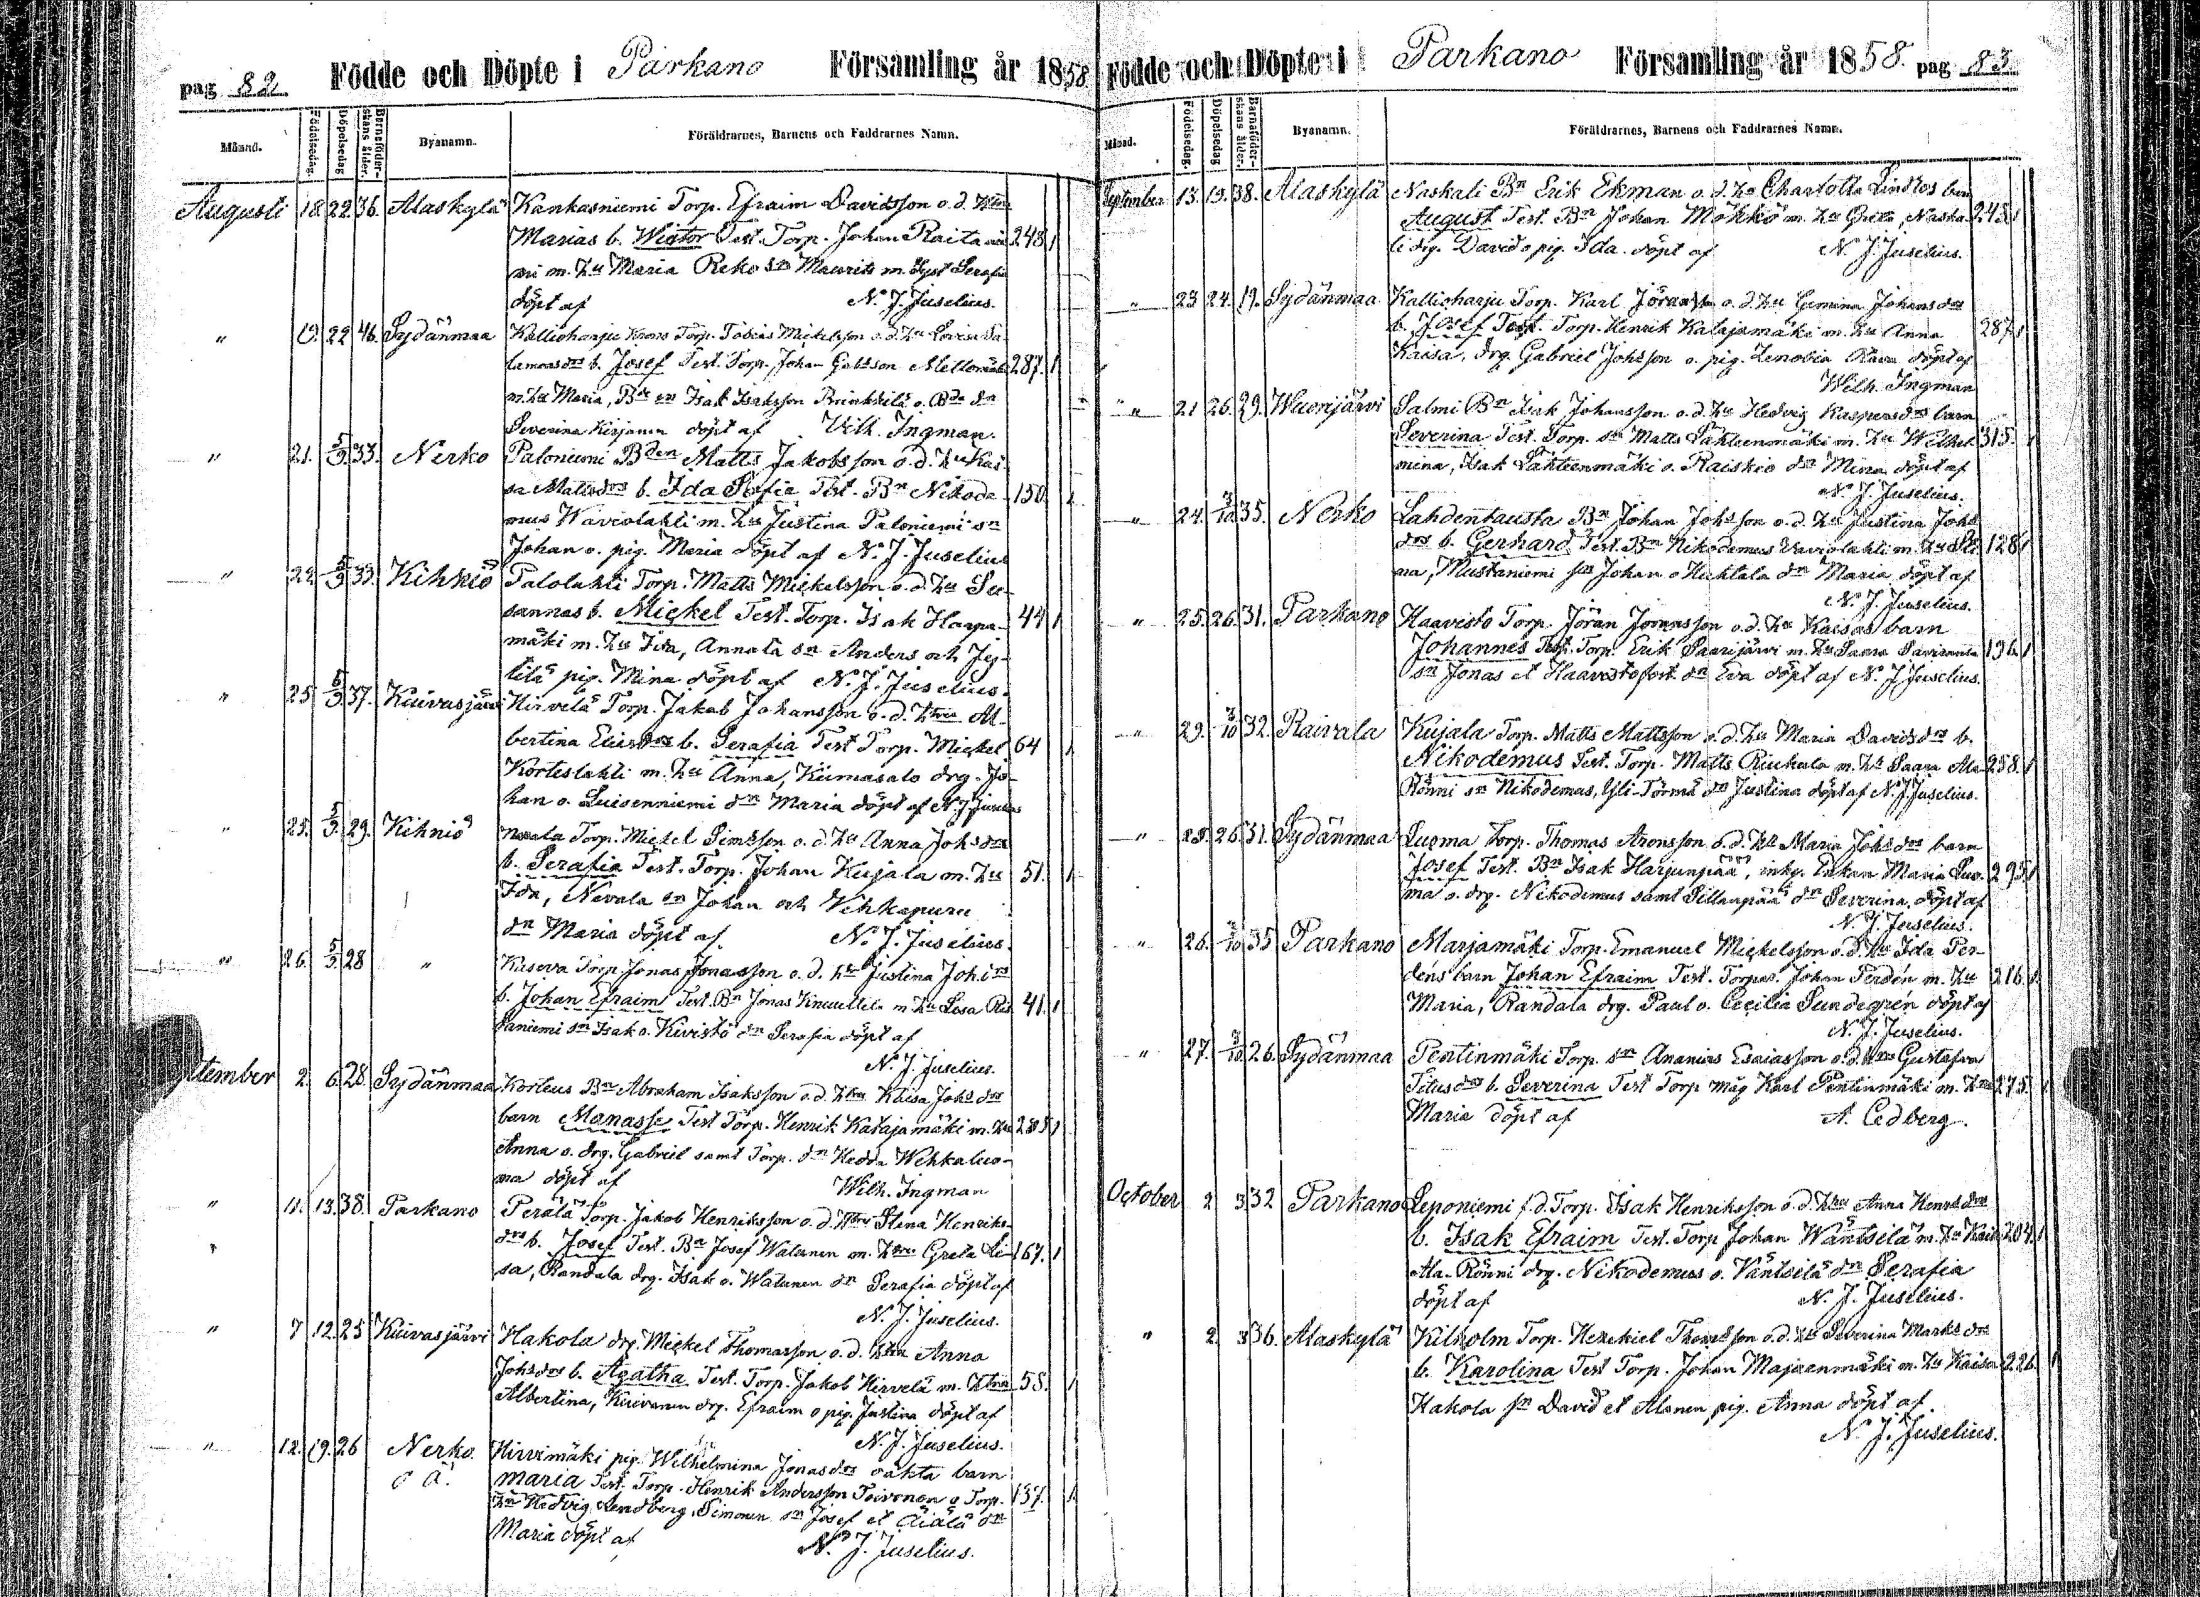 pag 82. Födde och Döpte i Parkano Församling år 1858
Månad. Födelsedag. Döpelsedag Barnaföderskans ålder. Byanamn. Föräldrarnes, Barnens och Faddrarnes Namn.
Augusti 18. 22. 36. Alaskylä Kankasniemi Torp. Efraim Davidsson o. d. Hru
Marias b. Wictor Test. Torp. Johan Raita 248 1
mi m. Hu Maria Reko sn Maurits m. Syst Serafia
döpt af N. J. Juselius.
" 19. 22 46. Sydänmaa Kallioharju Krons Torp. Tobias Mickelsson o. d. Hu Lovisa Sa-
lamonsdr b. Josef Test. Torp. Johan Gabsson Mettomäki 287. 1
m. Hu Maria, Bde sn Isak Isaksson Brinkkilä o. Bde dn
Severina Kirjanen döpt af Vilh. Ingman.
" 21. 5/9. 33. Nerko Paloniemi Bden Matts Jakobsson o. d. Hu Kai-
sa Mattsdrs b. Ida Sofia Test. Bn Nikode- 150. 1
mus Waviolahti m. Hu Justina Paloniemi sn
Johan o. pig. Maria döpt af N. J. Juselius
" 22. 5/9 33. Kihniö Palolahti Torp. Matts Mickelsson o. d. Hu Su-
sannas b. Mickel Test. Torp. Isak Harju- 44 1
mäki m. Hu Ida, Annala sn Anders och Jy-
lilä pig. Mina döpt af N. J. Juselius.
" 25 5/9 37. Kuivasjärvi Hirvelä Torp. Jakob Johansson o. d. Hru Al-
bertina Eliedrs b. Serafia Test Torp. Mickel 64 1
Korteslahti m. Hu Anna, Kiimasalo drg. Jo-
han o. Luisenniemi dn Maria döpt af N. J. Juselius
" 25. 5/9. 29. Kihniö Nevala Torp. Mickel Simsson o. d. Hu Anna Johsdrs
b. Serafia Test. Torp. Johan Kujala m. Hu 51. 1
Ida, Nevala sn Johan och Vehkapuru
dn Maria döpt af. N. J. Juselius.
" 26. 5/9. 28 " Kuseva Torp Jonas Jonasson o. d. Hu Justina Johsdrs
b. Johan Efraim Test. Bn Jonas Knuuttila m Hu Lesa Ris 41. 1
saniemi sn Isak o. Kivistö dn Serafia döpt af
N. J. Juselius.
September 2. 6. 28. Sydänmaa Korteus Bn Abraham Isaksson o. d. Hru Kaisa Johsdrs
barn Manasse Test Torp. Henrik Katajamäki m. Hu 285 1
Anna o. drg. Gabriel samt Torp. dn Hedda Wehkaluo-
ma döpt af Wilh. Ingman
" 11. 13. 38. Parkano Perälä Torp. Jakob Henriksson o. d. Hru Stina Henriks-
drs b. Josef Test. Bn Josef Watanen m. Hru Greta Li- 167. 1
sa, Randala drg. Isak o. Watanen dn Serafia döpt af
N. J. Juselius.
" 7 12. 25 Kuivasjärvi Hakola drg. Mickel Thomasson o. d. Hru Anna
Johsdrs b. Agatha Test. Torp. Jakob Hirvelä m. Hru 58. 1
Albertina, Kuivanen drg. Efraim o pig. Justina döpt af
N. J. Juselius.
" 12. 19. 26 Nerko. Hirvimäki pig. Wilhelmina Jonasdrs oäkta barn
o ä. Maria Test. Torp. Henrik Andersson Toivonen o Torp. 137. 1
Hu Hedvig Sandberg, Simonen sn Josef et Äiälä dn
Maria döpt af N. J. Juselius.
Födde och Döpte i Parkano Församling år 1858. pag 83
Månad. Födelsedag. Döpelsedag Barnaföderskans ålder. Byanamn. Föräldrarnes, Barnens och Faddrarnes Namn.
September 13. 19. 38. Alaskylä Naskali Bn Erik Ekman o. d. Hu Charlotta Lindros barn
August Test. Bn Johan Mökkö m. Hu Greta, Naska- 245 1
li drg. David o pig. Ida döpt af N. J. Juselius.
" 23 24. 19. Sydänmaa Kallioharju Torp. Karl Jöransson o. d. Hu Gemina Johansdrs
b. Josef Test. Torp. Henrik Katajamäki m. Hu Anna 287. 1
Kaisa, drg. Gabriel Johsson o. pig. Zenobia döpt af
Wilh. Ingman
" 21 26. 29. Wuorijärvi Salmi Bn Isak Johansson o. d. Hu Hedvig Kaspersdrs barn
Severina Test. Torp. sn Matts Lähteenmäki m. Hu Wilhel- 315. 1
mina, Isak Lähteenmäki o. Raiskio dn Mina döpt af
N. J. Juselius.
" 24. 3/10 35. Nerko Lahdentausta Bn Johan Johsson o. d. Hu Justina Johs
drs b. Gerhard Test. Bn Nikodemus Vaviolahti m. Hu Sti 128 1
na, Mustaniemi sn Johan o Huhtala dn Maria döpt af
N. J. Juselius.
" 25. 26. 31. Parkano Haavisto Torp. Jöran Jöransson o. d. Hu Kaisas barn
Johannes Test. Torp. Erik Saarijärvi m. Hu Saara 196 1
sn Jonas et Haavisto fost. dn Eva döpt af N. J. Juselius.
" 29. 3/10 32. Raivala Kujala Torp. Matts Mattsson o. d. Hu Maria Davidsdrs b.
Nikodemus Test. Torp. Matts Riukula m. Hu Saara Ala- 258. 1
Rönni sn Nikodemus, Yli-Törmä dn Justina döpt af N. J. Juselius.
" 25. 26 31. Sydänmaa Luoma Torp. Thomas Aronsson o. d. Hu Maria Johsdrs barn
Josef Test. Bn Isak Harjunpää, inhy. Enkan Maria Luo- 295 1
ma o. drg. Nikodemus samt Sillanpää dn Severina, döpt af
N. J. Juselius.
" 26. 3/10 35 Parkano Marjamäki Torp. Emanuel Mickelsson o. d. Hu Ida Fer-
déns barn Johan Efraim Test. Torpar. Johan Ferdén m. Hu 216 1
Maria, Randala drg. Paul o. Cecilia Sundegrén döpt af
N. J. Juselius.
" 27. 3/10 26. Sydänmaa Pentinmäki Torp. sn Ananias Esaiasson o. d. Hru Gustafva
Titusdrs b. Severina Test Torp måg Karl Pentinmäki m. Hru 275. 1
Maria döpt af A. Cedberg.
October 2 3 32 Parkano Leponiemi f. d. Torp. Isak Henriksson o. d. Hru Anna Henrsdrs
b. Isak Efraim Test. Torp Johan Wäntsilä m. Hu Kaisa 204. 1
Ala-Rönni drg. Nikodemus o. Väntsilä dn Serafia
döpt af N. J. Juselius.
" 2. 3 36. Alaskylä Kilholm Torp. Hezekiel Thomsson o. d. Hu Severina Marksdrs
b. Karolina Test Torp. Johan Majaanmäki m. Hu Kaisa 226. 1
Hakola sn David et Alanen pig. Anna döpt af.
N. J. Juselius.